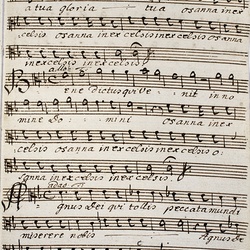 a tua gloria tua osanna inex
celsis osanna inex celsis inex celsis osanna
inexcelsis inexcelsis
alla
ene dictus qui ve nit inno
mine Do: mini osanna inex
celsis osanna inexcelsis osanna inexcelsis o:
sanna inexcelsis inexcelsis
adag
gnus Dei qui tollis peccata mundi
miserere nobis Agnus De